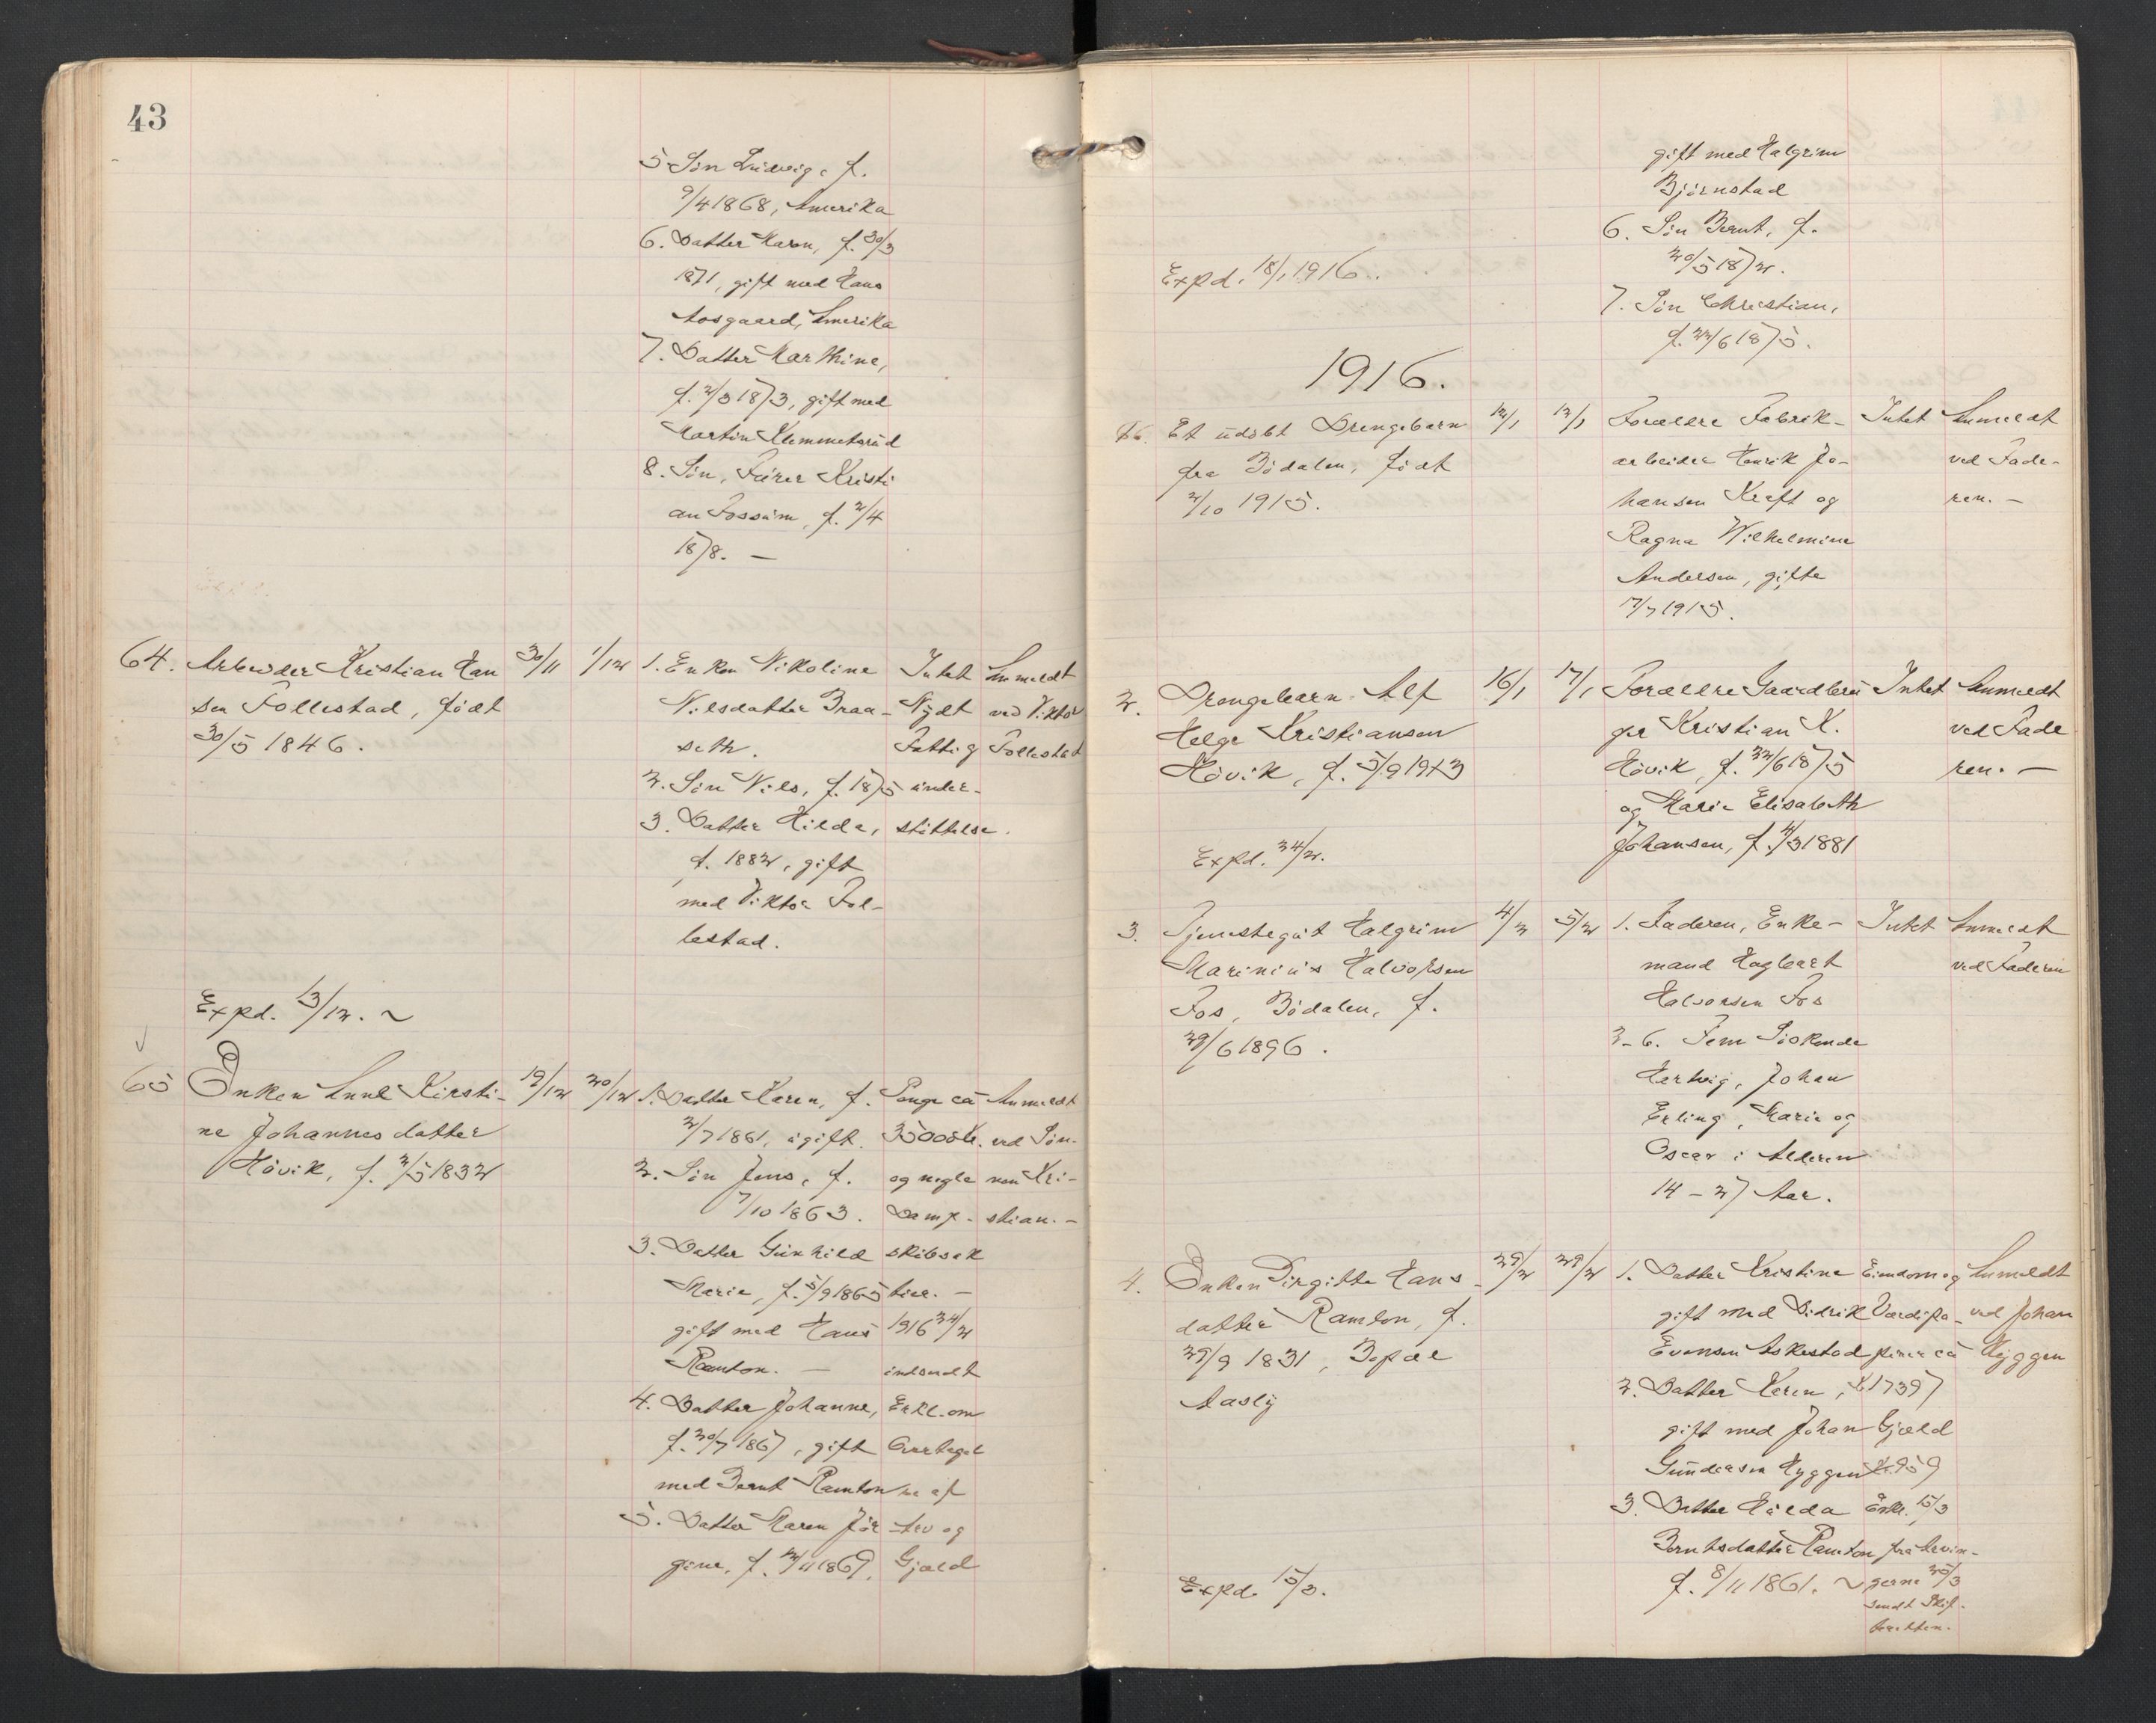 43
5 Sön Ludvig, f.
9/4 1868, Amerika
6. Datter Maren, f. 30/3
1871, gift med Hans
Aosgaard, Amerika
7. Datter Marthine,
f. 2/3 1873, gift med
Martin Klemmetsrud
8. Sön, Fürer Kristi
an Fossum, f. 2/4
1878. —
64. Arbeider Kristian Han
sen Follestad, född
30/5 1846.
30/11
1/12
1. Enken Nikoline
Nilsdatter Braa-
seth.
2. Sön Nils, f. 1875
3. Datter Hilda,
f. 1882, gift
med Viktor Fol-
lestad.
Intet
Nydt
Fattig
under-
stöttelse.
Anmeldt
ved Viktor
Follestad
Expd. 13/12. ~
65 Enken Anne Kirsti-
ne Johannesdatter
Hövik, f. 2/5 1832
19/12
20/12
1. Datter Karen, f.
2/7 1861, ugift.
2. Sön Jens, f.
7/10 1863.
3. Datter Gunhild
Marie, f. 5/9 1865
gift med Hans
Ramton. —
4. Datter Johanne,
f. 30/7 1867, gift
med Bernt Ramton
5. Datter Maren Jör
gine, f. 12/11 1869,
Penge ca
3500 Kr.
og nogle
Damp-
skibsak
tier. —
1916 24/2
indsendt
Erkl. om
Overtagel
se af
Arv og
Gjæld
Anmeldt
ved Sön-
nen Kri-
stian. —
gift med Halgrim
Björnstad
6. Sön Bernt, f.
20/5 1872.
7. Sön Christian,
f. 22/6 1875.
Expd. 18/1 1916.
1916.
1. Et udöbt Drengebarn
fra Bödalen, födt
2/10 1915.
12/1
13/1
Forældre Fabrik-
arbeider Henrik Jo-
hansen Kraft og
Ragna Wilhelmine
Andersen, gifte
17/7 1915.
Intet
Anmeldt
ved Fade-
ren. —
2. Drengebarn Alf
Helge Kristiansen
Hövik, f. 5/9 1913
16/1
17/1
Forældre Gaardbru
ger Kristian K.
Hövik, f. 22/6 1875
og Marie Elisabeth
Johansen, f. 4/3 1881
Intet
Anmeldt
ved Fade
ren. —
Expd. 24/2.
3. Tjenestegut Halgrim
Marinius Halvorsen
Fos, Bödalen, f.
29/6 1896.
4/2
5/2
1. Faderen, Enke-
mand Hagbart
Halvorsen Fos
2-6. Fem Söskende
Hertvig, Johan
Erling, Marie og
Oscar i Alderen
14 - 27 Aar.
Intet
Anmeldt
ved Faderen
4. Enken Birgitte Hans-
datter Ramton, f.
29/9 1831, Bopæl
Aasly
29/2
29/2
1. Datter Kristine
gift med Didrik
Evensen Askestad
2. Datter Karen,
gift med Johan
Gundersen Hyggen
3. Datter Hilda
Berntsdatter Ramton
f. 8/11 1861. ~
Eiendom og
Værdipa-
pirer ca
Kr. 17397
Gjæld
Kr. 959
Erkl. 15/3
fra Arvin-
gerne 25/3
sendt Skif-
teretten.
Anmeldt
ved Johan
Hyggen
Expd. 15/3.